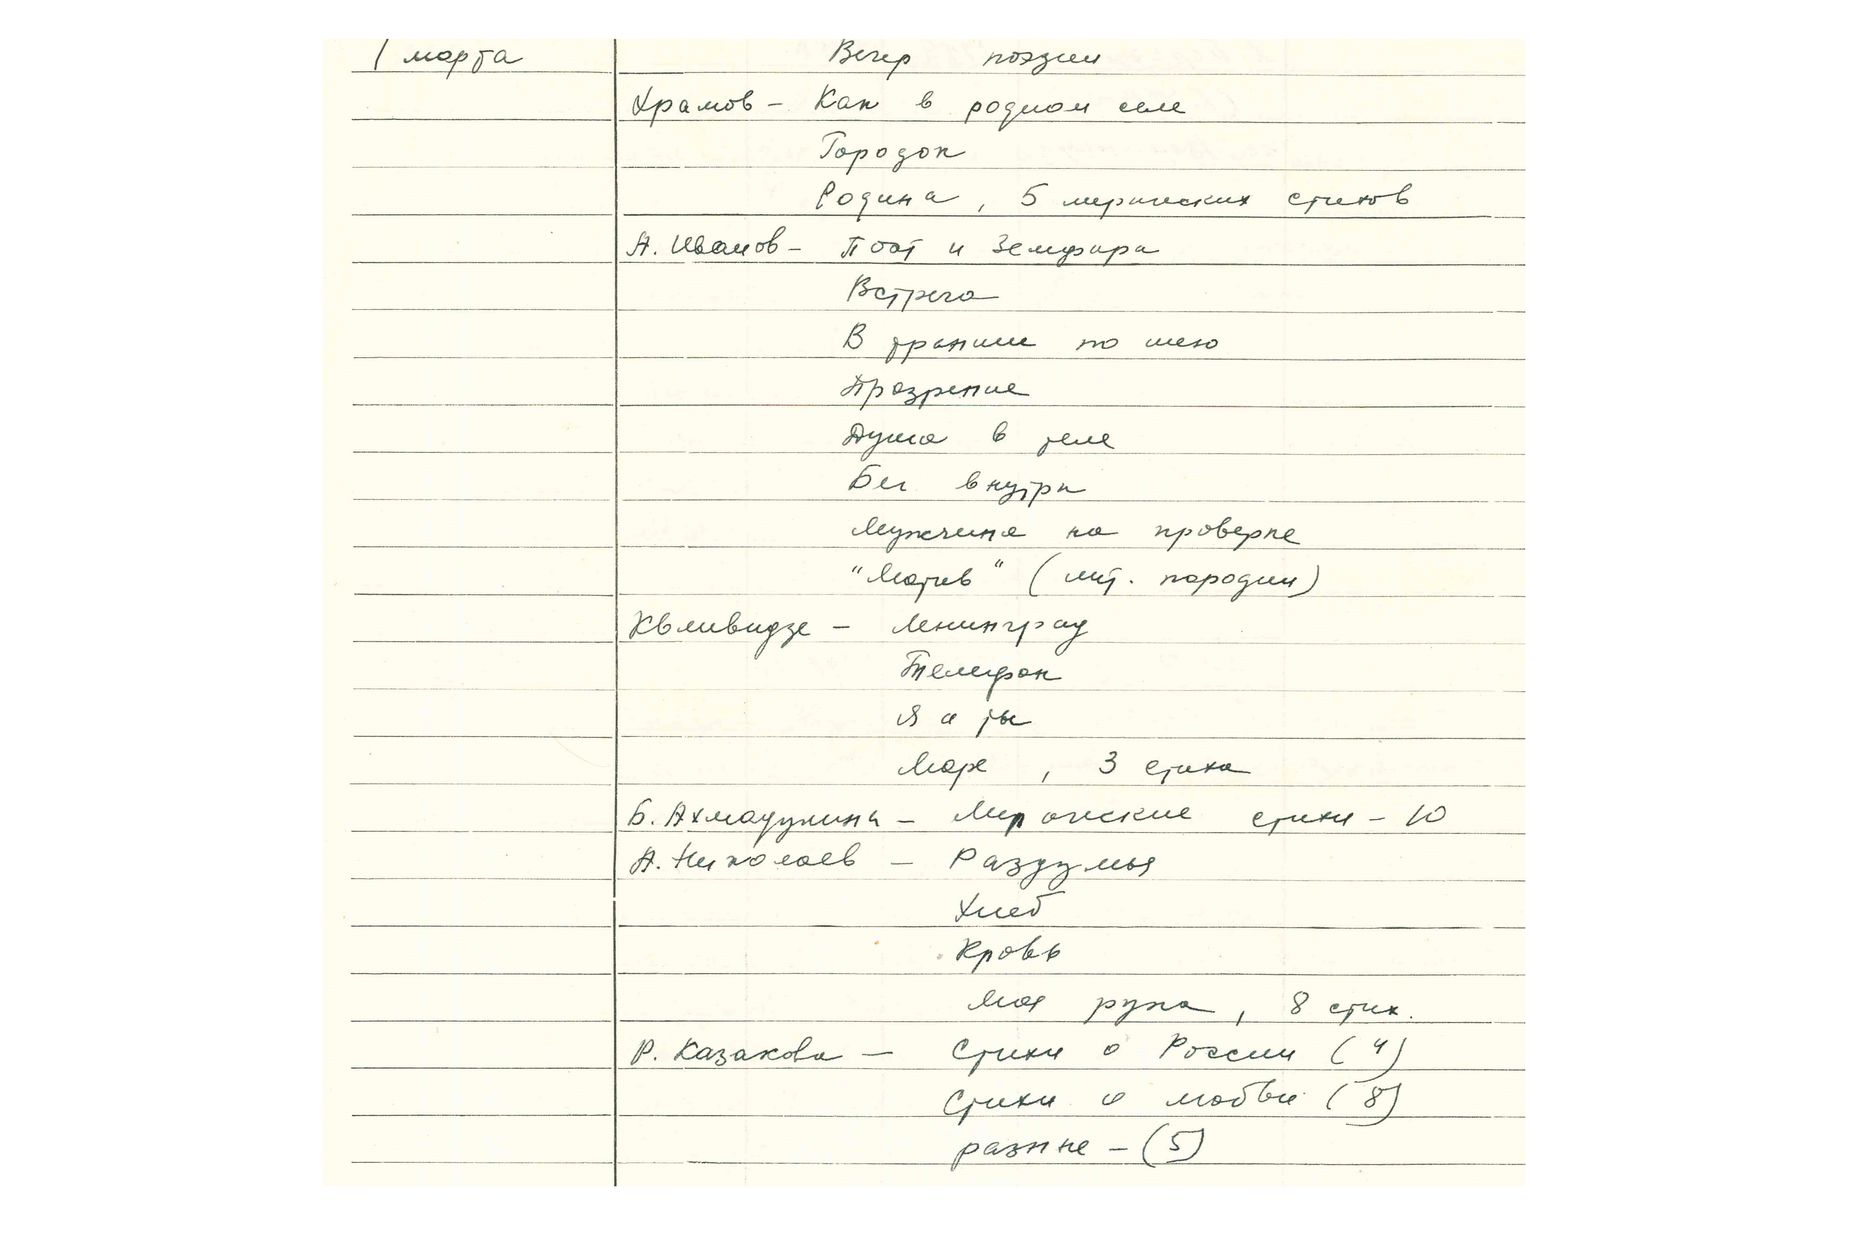 1 марта Вечер поэзии
Храмов – Как в родном селе
Городок
Родина, 5 лирических стихов
А. Иванов – Поэт и Земфира
Встреча
В траншее по шею
Прозрение
Душа в теле
Бег внутри
Мужчина на проверке
"Мотив" (лит. пародии)
Квливидзе – Ленинград
Телефон
Я и ты
Море, 3 стиха
Б. Ахмадулина – Лирические стихи – 10
А. Николаев – Раздумья
Хлеб
Кровь
Моя рука, 8 стих.
Р. Казакова – Стихи о России (4)
Стихи о любви (8)
разные – (5)